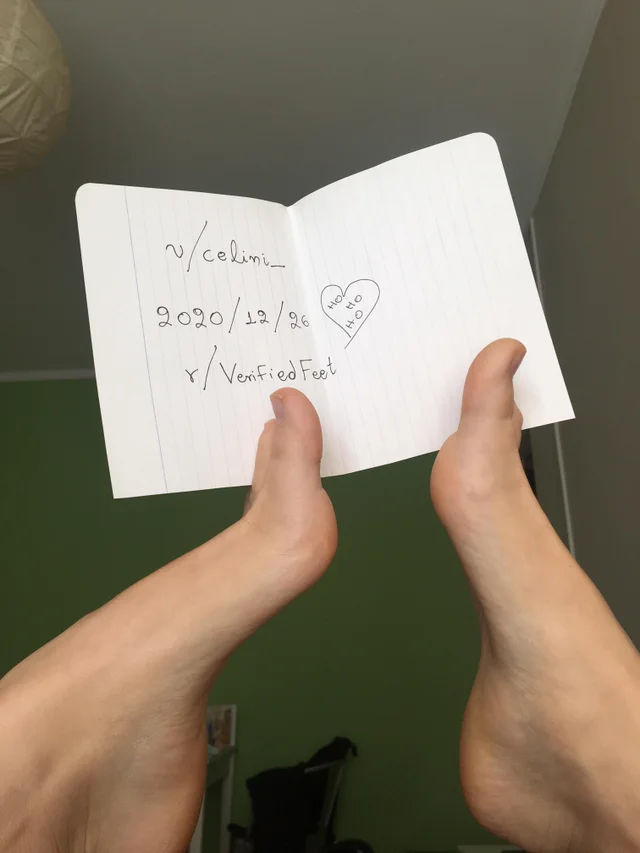 u/celini_
2020/12/26
r/VerifiedFeet
HO
HO
HO